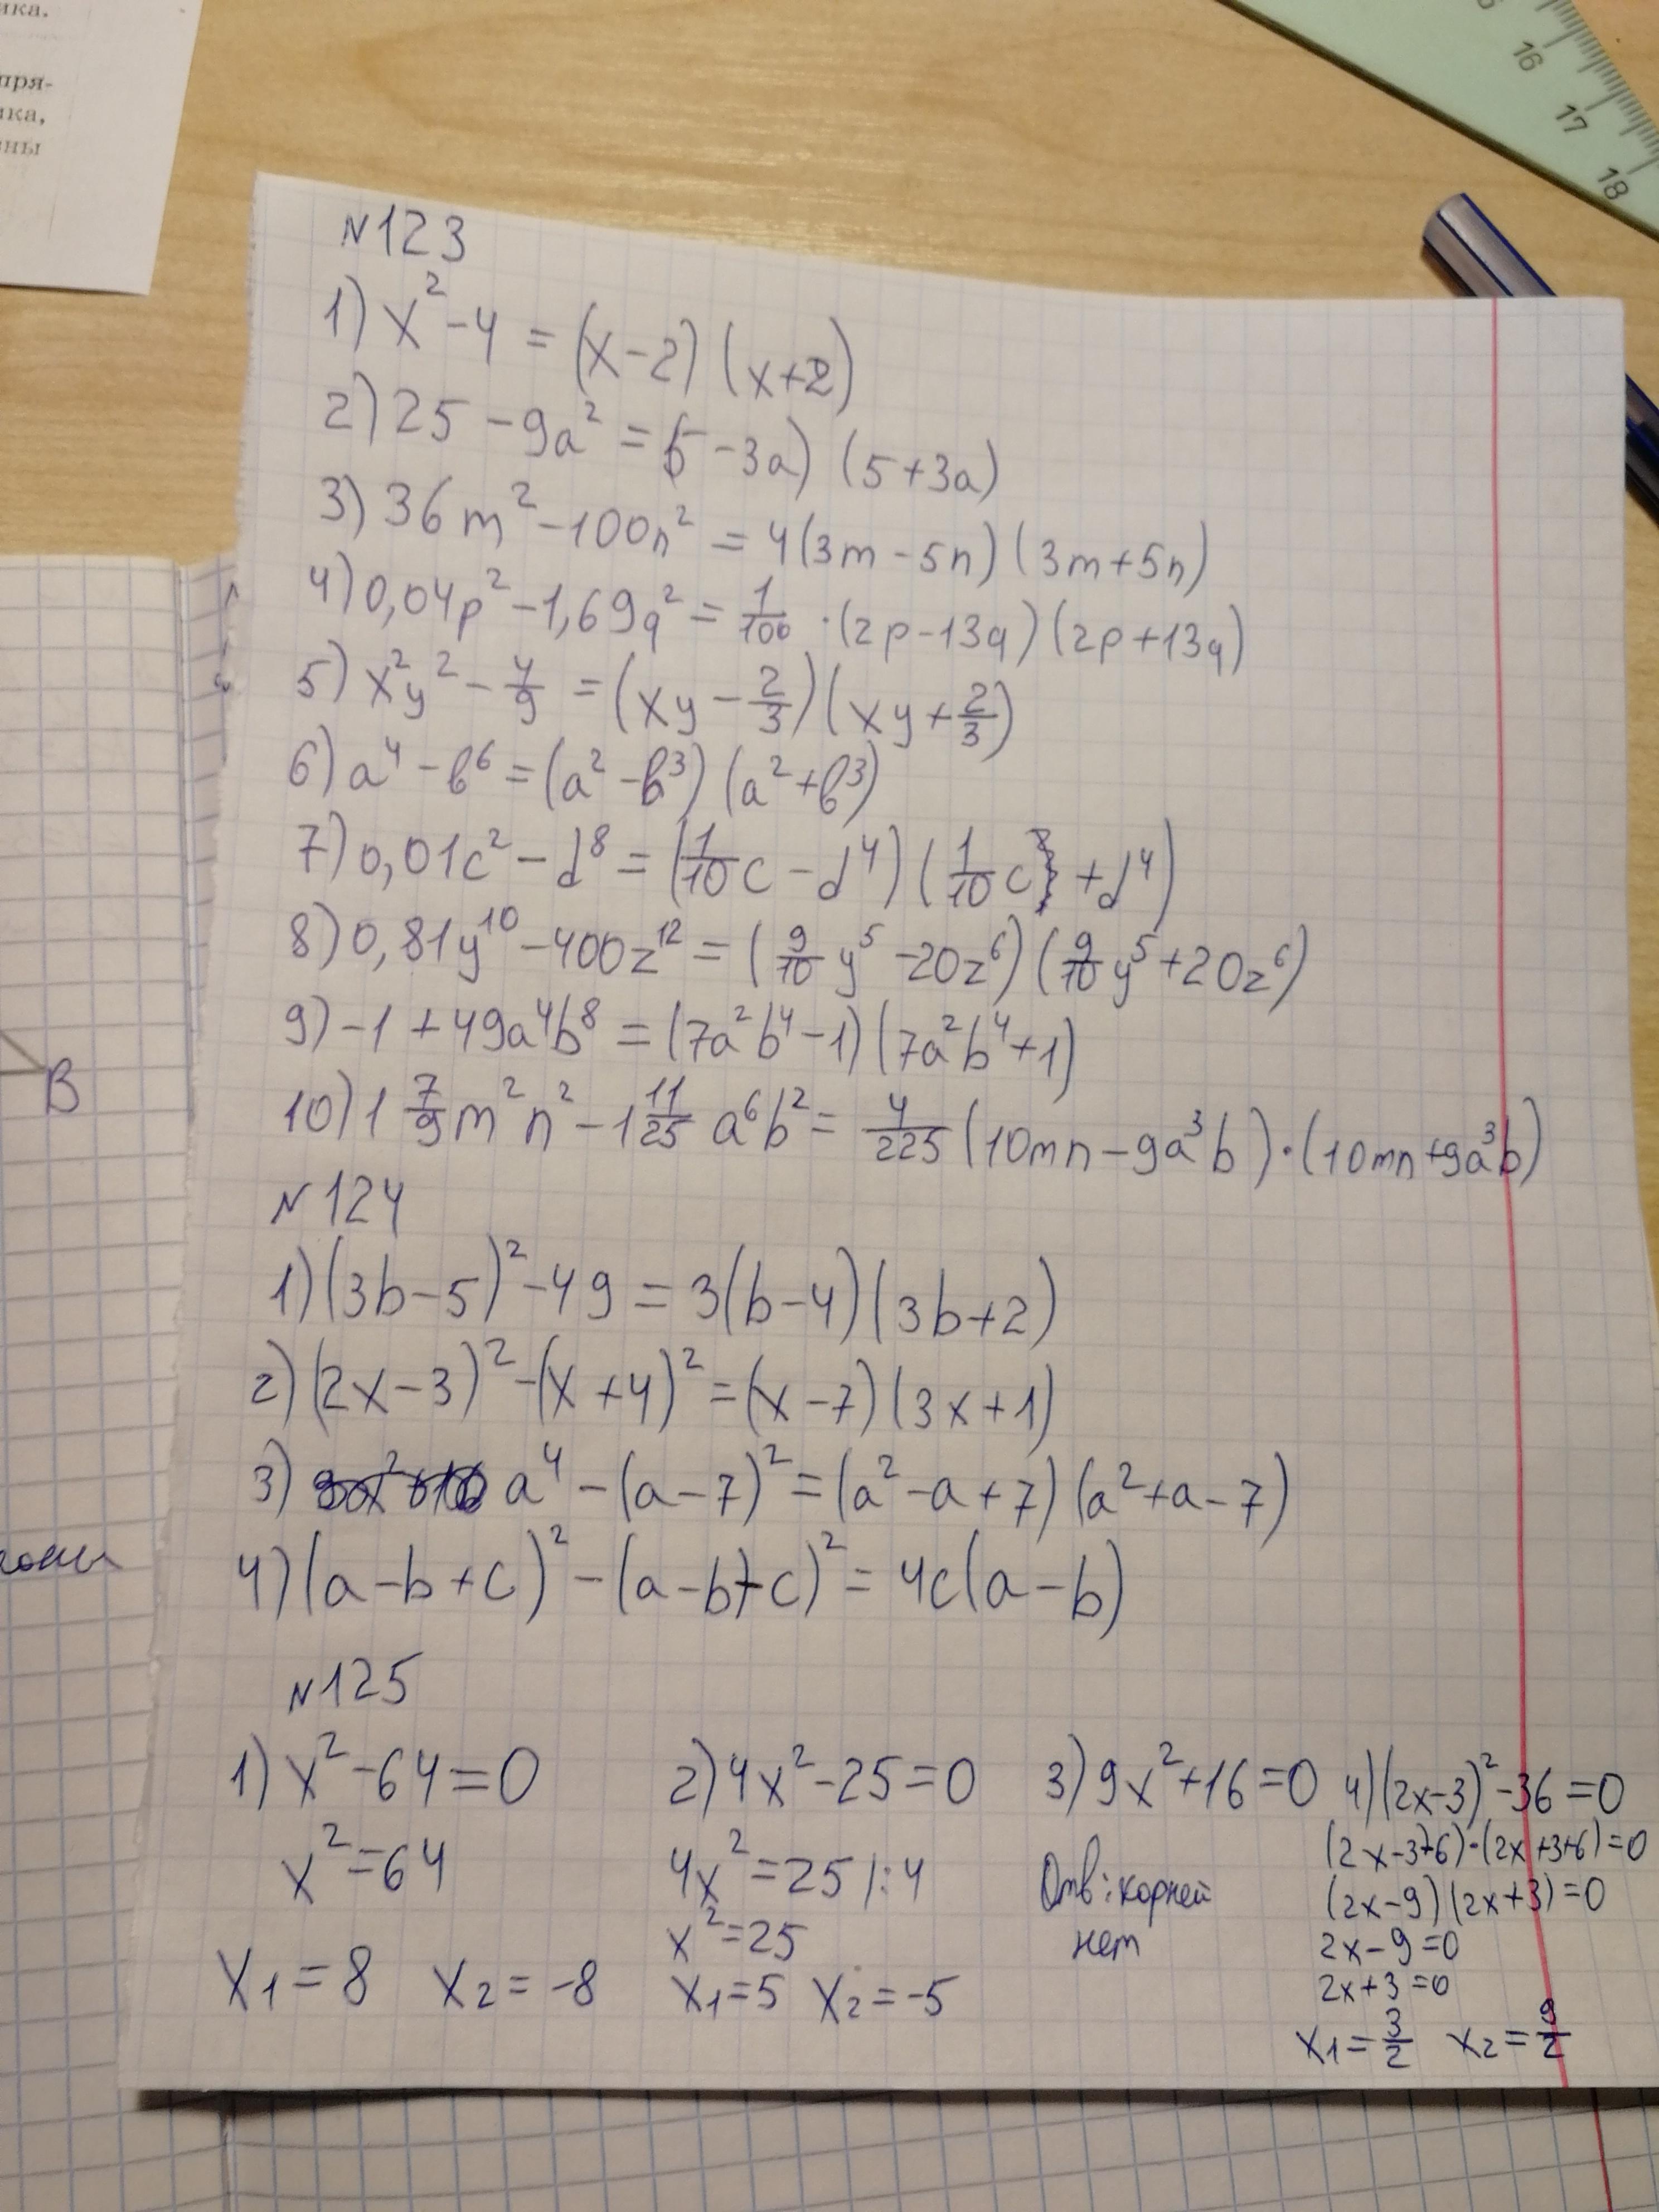 ика.
пря-
ика,
ины
16
17
18
N123
1) x² - 4 = (x - 2) (x + 2)
2) 25 - 9a² = (5 - 3a) (5 + 3a)
3) 36m² - 100n² = 4(3m - 5n) (3m + 5n)
4) 0,04p² - 1,69q² = 1/100 · (2p - 13q) (2p + 13q)
5) x²y² - 4/9 = (xy - 2/3) (xy + 2/3)
6) a⁴ - b⁶ = (a² - b³) (a² + b³)
7) 0,01c² - d⁸ = (1/10 c - d⁴) (1/10 c + d⁴)
8) 0,81y¹⁰ - 400z¹² = (9/10 y⁵ - 20z⁶) (9/10 y⁵ + 20z⁶)
9) -1 + 49a⁴b⁸ = (7a²b⁴ - 1) (7a²b⁴ + 1)
10) 1 7/9 m²n² - 1 11/25 a⁶b² = 4/225 (10mn - 9a³b) · (10mn + 9a³b)
B
N124
1) (3b - 5)² - 49 = 3(b - 4) (3b + 2)
2) (2x - 3)² - (x + 4)² = (x - 7) (3x + 1)
3) a⁴ - (a - 7)² = (a² - a + 7) (a² + a - 7)
4) (a - b + c)² - (a - b - c)² = 4c(a - b)
N125
1) x² - 64 = 0
x² = 64
x₁ = 8 x₂ = -8
2) 4x² - 25 = 0
4x² = 25 |:4
x² = 25
x₁ = 5 x₂ = -5
3) 9x² + 16 = 0
Отв: корней
нет
4) (2x - 3)² - 36 = 0
(2x - 3 - 6) · (2x + 3 + 6) = 0
(2x - 9) (2x + 3) = 0
2x - 9 = 0
2x + 3 = 0
x₁ = 3/2 x₂ = 9/2